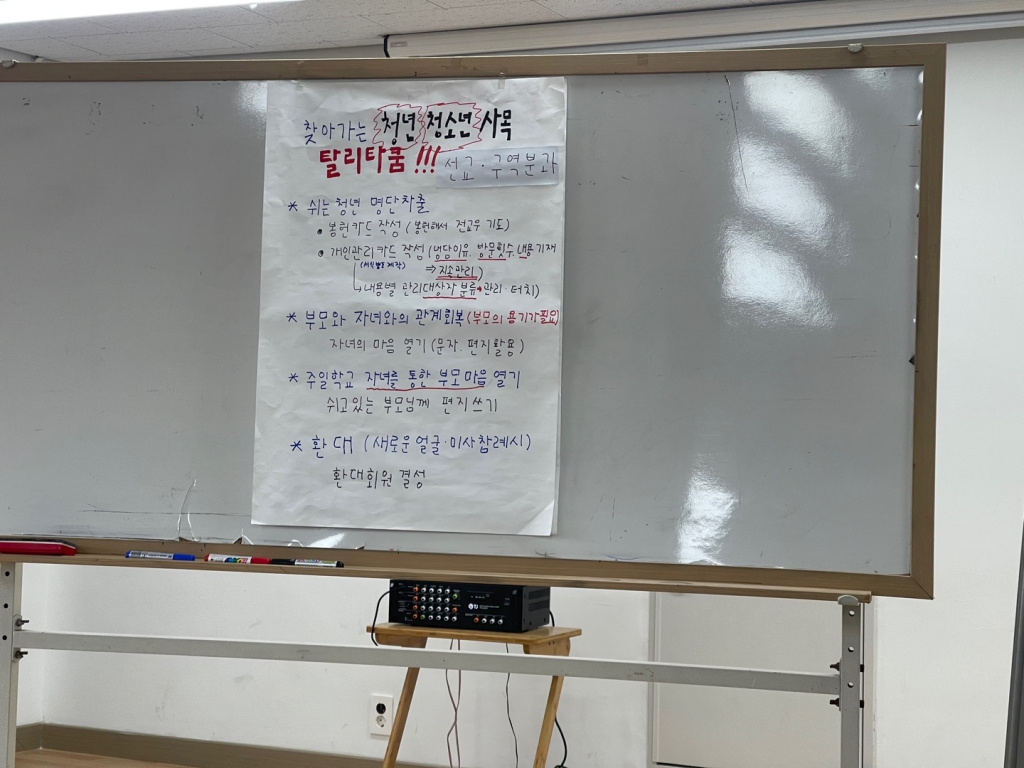 찾아가는 청년 청소년 사목
탈리타쿰!!! 선교·구역분과
* 쉬는청년 명단차출
• 봉헌카드 작성 (봉헌해서 전교우 기도)
• 개인관리카드 작성 (냉담이유. 방문횟수. 내용기재
⇒ 지속관리)
↳ 내용별 관리대상자 분류 → 관리·터치)
* 부모와 자녀와의 관계회복 (부모의 용기가 필요)
자녀의 마음 열기 (문자. 편지활용)
* 주일학교 자녀를 통한 부모마음 열기
쉬고있는 부모님께 편지쓰기
* 환대 (새로운얼굴·미사참례시)
환대회원 결성